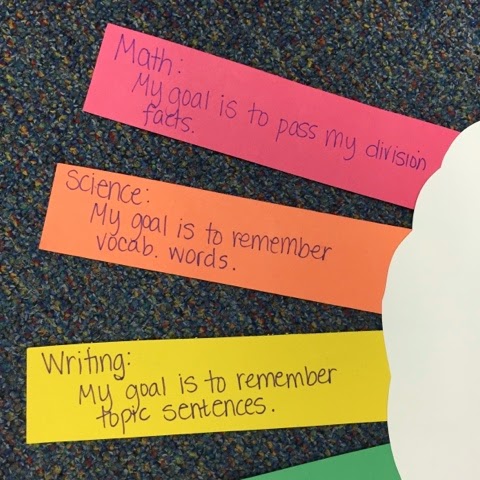 Math:
My goal is to pass my division
facts.
Science:
My goal is to remember
vocab. words.
Writing:
My goal is to remember
topic sentences.